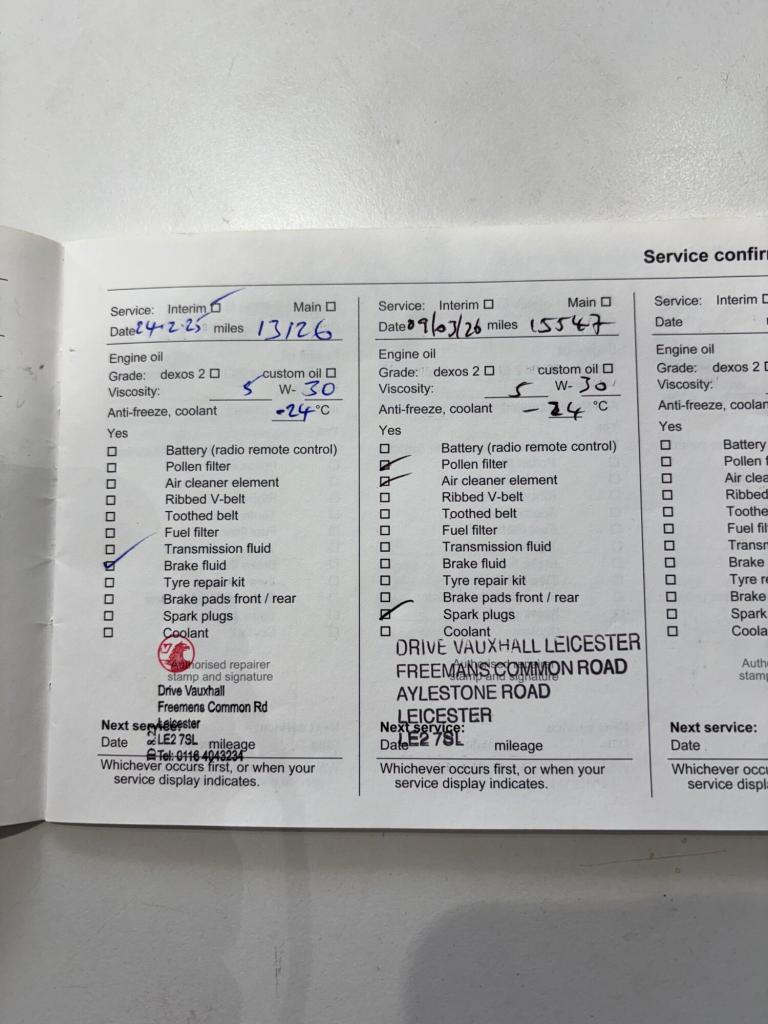 Service confir
Service: Interim ☑ Main ☐
Date 24.2.25 miles 13126
Engine oil
Grade: dexos 2 ☐ custom oil ☐
Viscosity: 5 W- 30
Anti-freeze, coolant -24 °C
Yes
☐ Battery (radio remote control)
☐ Pollen filter
☐ Air cleaner element
☐ Ribbed V-belt
☐ Toothed belt
☐ Fuel filter
☐ Transmission fluid
☑ Brake fluid
☐ Tyre repair kit
☐ Brake pads front / rear
☐ Spark plugs
☐ Coolant
Authorised repairer
stamp and signature
Drive Vauxhall
Freemens Common Rd
Leicester
LE2 7SL
Tel: 0116 4043234
Next service:
Date mileage
Whichever occurs first, or when your
service display indicates.
Service: Interim ☐ Main ☐
Date 09/03/26 miles 15547
Engine oil
Grade: dexos 2 ☐ custom oil ☐
Viscosity: 5 W- 30
Anti-freeze, coolant - 24 °C
Yes
☐ Battery (radio remote control)
☑ Pollen filter
☑ Air cleaner element
☐ Ribbed V-belt
☐ Toothed belt
☐ Fuel filter
☐ Transmission fluid
☐ Brake fluid
☐ Tyre repair kit
☐ Brake pads front / rear
☑ Spark plugs
☐ Coolant
DRIVE VAUXHALL LEICESTER
Authorised repairer
FREEMANS COMMON ROAD
stamp and signature
AYLESTONE ROAD
LEICESTER
LE2 7SL
Next service:
Date mileage
Whichever occurs first, or when your
service display indicates.
Service: Interim ☐
Date
Engine oil
Grade: dexos 2
Viscosity:
Anti-freeze, coolan
Yes
☐ Battery
☐ Pollen f
☐ Air clea
☐ Ribbed
☐ Toothe
☐ Fuel fil
☐ Transm
☐ Brake
☐ Tyre re
☐ Brake
☐ Spark
☐ Coola
Auth
stamp
Next service:
Date
Whichever occu
service displ